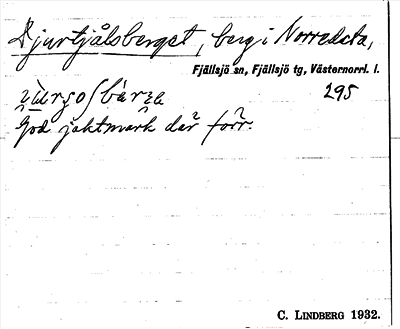 Djurtjålsberget, berg i Norredeta,
Fjällsjö sn, Fjällsjö tg, Västernorrl. l.
295
God jaktmark där förr.
C. LINDBERG 1932.